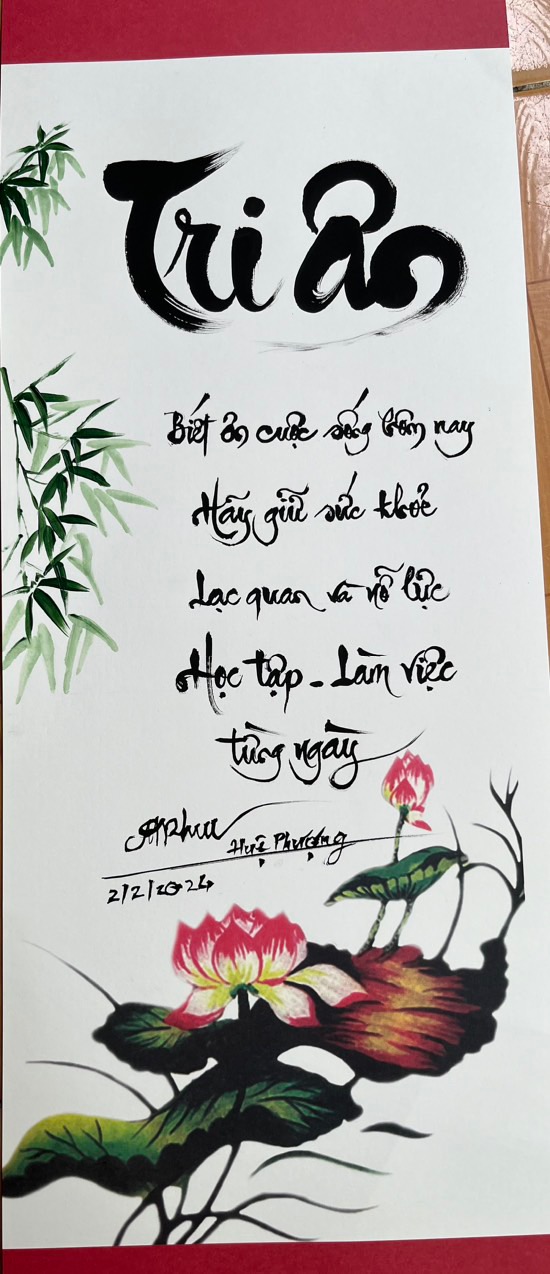 Tri ân
Biết ơn cuộc sống hôm nay
Hãy giữ sức khoẻ
Lạc quan và nỗ lực
Học tập - Làm việc
từng ngày
Huệ Phượng
2/2/2024